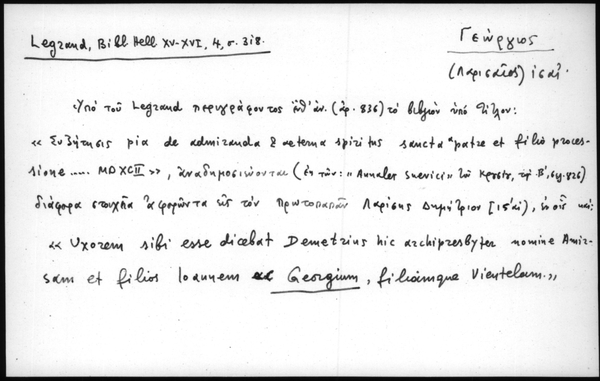 Legrand, Bibl Hell XV-XVI, 4, σ. 318.
Γεώργιος
(Λαρισαῖος) ις αἰ.
Ὑπὸ τοῦ Legrand περιγράφοντος (ἀρ. 836) τὸ βιβλίον ὑπὸ τίτλον:
« Συζήτησις pia de admiranda & aeterna spiritus sancta a patre et filio proces-
sione ..... MDXCII », ἀναδημοσιεύονται (ἐκ τῶν: « Annales Suevici » τοῦ
διάφορα στοιχεῖα ἀφορῶντα εἰς τὸν πρωτοπαπᾶν Λαρίσης Δημήτριον [ις αἰ], ἐν οἷς καὶ:
« Uxorem sibi esse dicebat Demetrius hic archipresbyter nomine Amir-
sam et filios Ioannem Georgium, filiamque Vientelam. »